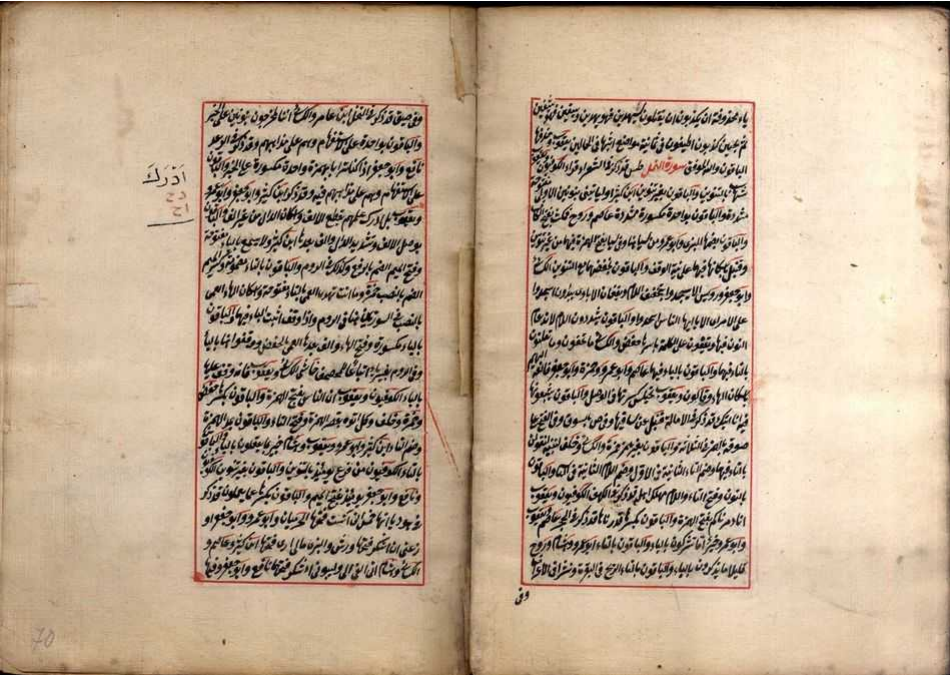 ياء محذوفة ان يكذبون ان يقتلون سيهدين فهو يهدين ويسقين فهو يشفين
ثم يحيين كذبون اطيعون في ثمانية مواضع اثبتها في الحالين يعقوب
بالله والله الموفق سورة النمل طس قد ذكر في الشعراء قرأ الكوفيون
بشهاب بالتنوين والباقون بغير تنوين ابن كثير او ليأتينني بنونين الاولى
مشددة والباقون بواحدة مكسورة مشددة عاصم وروح فمكث بفتح الكاف
والباقون بضمها البزي وابو عمرو من سبأ هنا وفي لسبأ بفتح الهمزة فيهما من غير تنوين
وقنبل باسكانها فيهما على نية الوقف والباقون بخفضها مع التنوين الكسائي
وابو جعفر ورويس الا يسجدوا بتخفيف اللام ويقفان الا يا ويبتدؤن اسجدوا
على الامر اي الا يا ايها الناس اسجدوا والباقون يشددون اللام لاندغام
النون فيها ويقفون على الكلمة باسرها حفص والكسائي ما تخفون وما تعلنون
بالتاء فيهما والباقون بالياء فيهما عاصم وابو عمرو وحمزة وابو جعفر فالقه اليهم
باسكان الهاء وقالون ويعقوب بخلاس كسرتها في الوصل والباقون يشبعونها
فيه انا آتيك قد ذكر في الامالة قنبل عن ساقيها وفي ص بالسوق وفي الفتح على
سوقه بالهمز في الثلاثة والباقون بغير همز حمزة والكسائي وخلف لتبيتنه ثم لتقولن
بالتاء فيهما وضم التاء الثانية في الاول وضم اللام الثانية في الثاني والباقون
بالنون وفتح التاء واللام مهلك اهله قد ذكر في الكهف الكوفيون ويعقوب
انا دمرناهم بفتح الهمزة والباقون بكسرها قدرناها قد ذكر في الحجر عاصم ويعقوب
وابو عمرو خير اما يشركون بالياء والباقون بالتاء ابو عمرو وهشام وروح
قليلا ما يذكرون بالياء والباقون بالتاء الريح في البقرة ونشرا في الاعراف
وفي
وفي ضيق قد ذكر في النحل ابن عامر والكسائي اننا لمخرجون بنونين على الخبر
والباقون بواحدة على الاستفهام وهم على مذاهبهم وقد ذكر في الرعد
نافع وابو جعفر اذا كنا ترابا بهمزة واحدة مكسورة على الخبر والباقون
على الاستفهام وهم على مذاهبهم فيه وقد ذكر ابن كثير وابو جعفر وابو عمرو
ويعقوب بل ادرك علمهم بقطع الالف واسكان الدال من غير الف والباقون
بوصل الالف وتشديد الدال والف بعدها ابن كثير ولا يسمع بالياء مفتوحة
وفتح الميم الصم بالرفع وكذلك في الروم والباقون بالتاء مضمومة وكسر الميم
الصم بالنصب حمزة وما انت تهدي العمي بالتاء مفتوحة واسكان الهاء العمي
بالنصب في السورتين هنا وفي الروم واذا وقف اثبت الياء فيهما والباقون
بالباء مكسورة وفتح الهاء والف بعدها العمي بالخفض ووقفوا هنا بالياء
وفي الروم بغير ياء اتباعا للمصحف خلا الكسائي ويعقوب فانه وقف عليها
بالياء الكوفيون ويعقوب ان الناس بفتح الهمزة والباقون بكسرها حفص
وحمزة وخلف وكل اتوه بقصر الهمزة وفتح التاء والباقون بمد الهمزة
وضم التاء ابن كثير وابو عمرو ويعقوب وهشام خبير بما يفعلون بالياء والباقون
بالتاء الكوفيون من فزع يومئذ بالتنوين والباقون بغير تنوين الكوفيون
ونافع وابو جعفر يومئذ بفتح الميم والباقون بكسرها عما يعملون قد ذكر
في هود ياءاتها خمس اني آنست فتحها الحرميان وابو عمرو وابو جعفر
اوزعني ان اشكر فتحها ورش والبزي مالي لا ارى فتحها ابن كثير وعاصم و
الكسائي وهشام اني القي الي وليبلوني ءاشكر فتحها نافع وابو جعفر وفيها
اَدْرَكَ
70